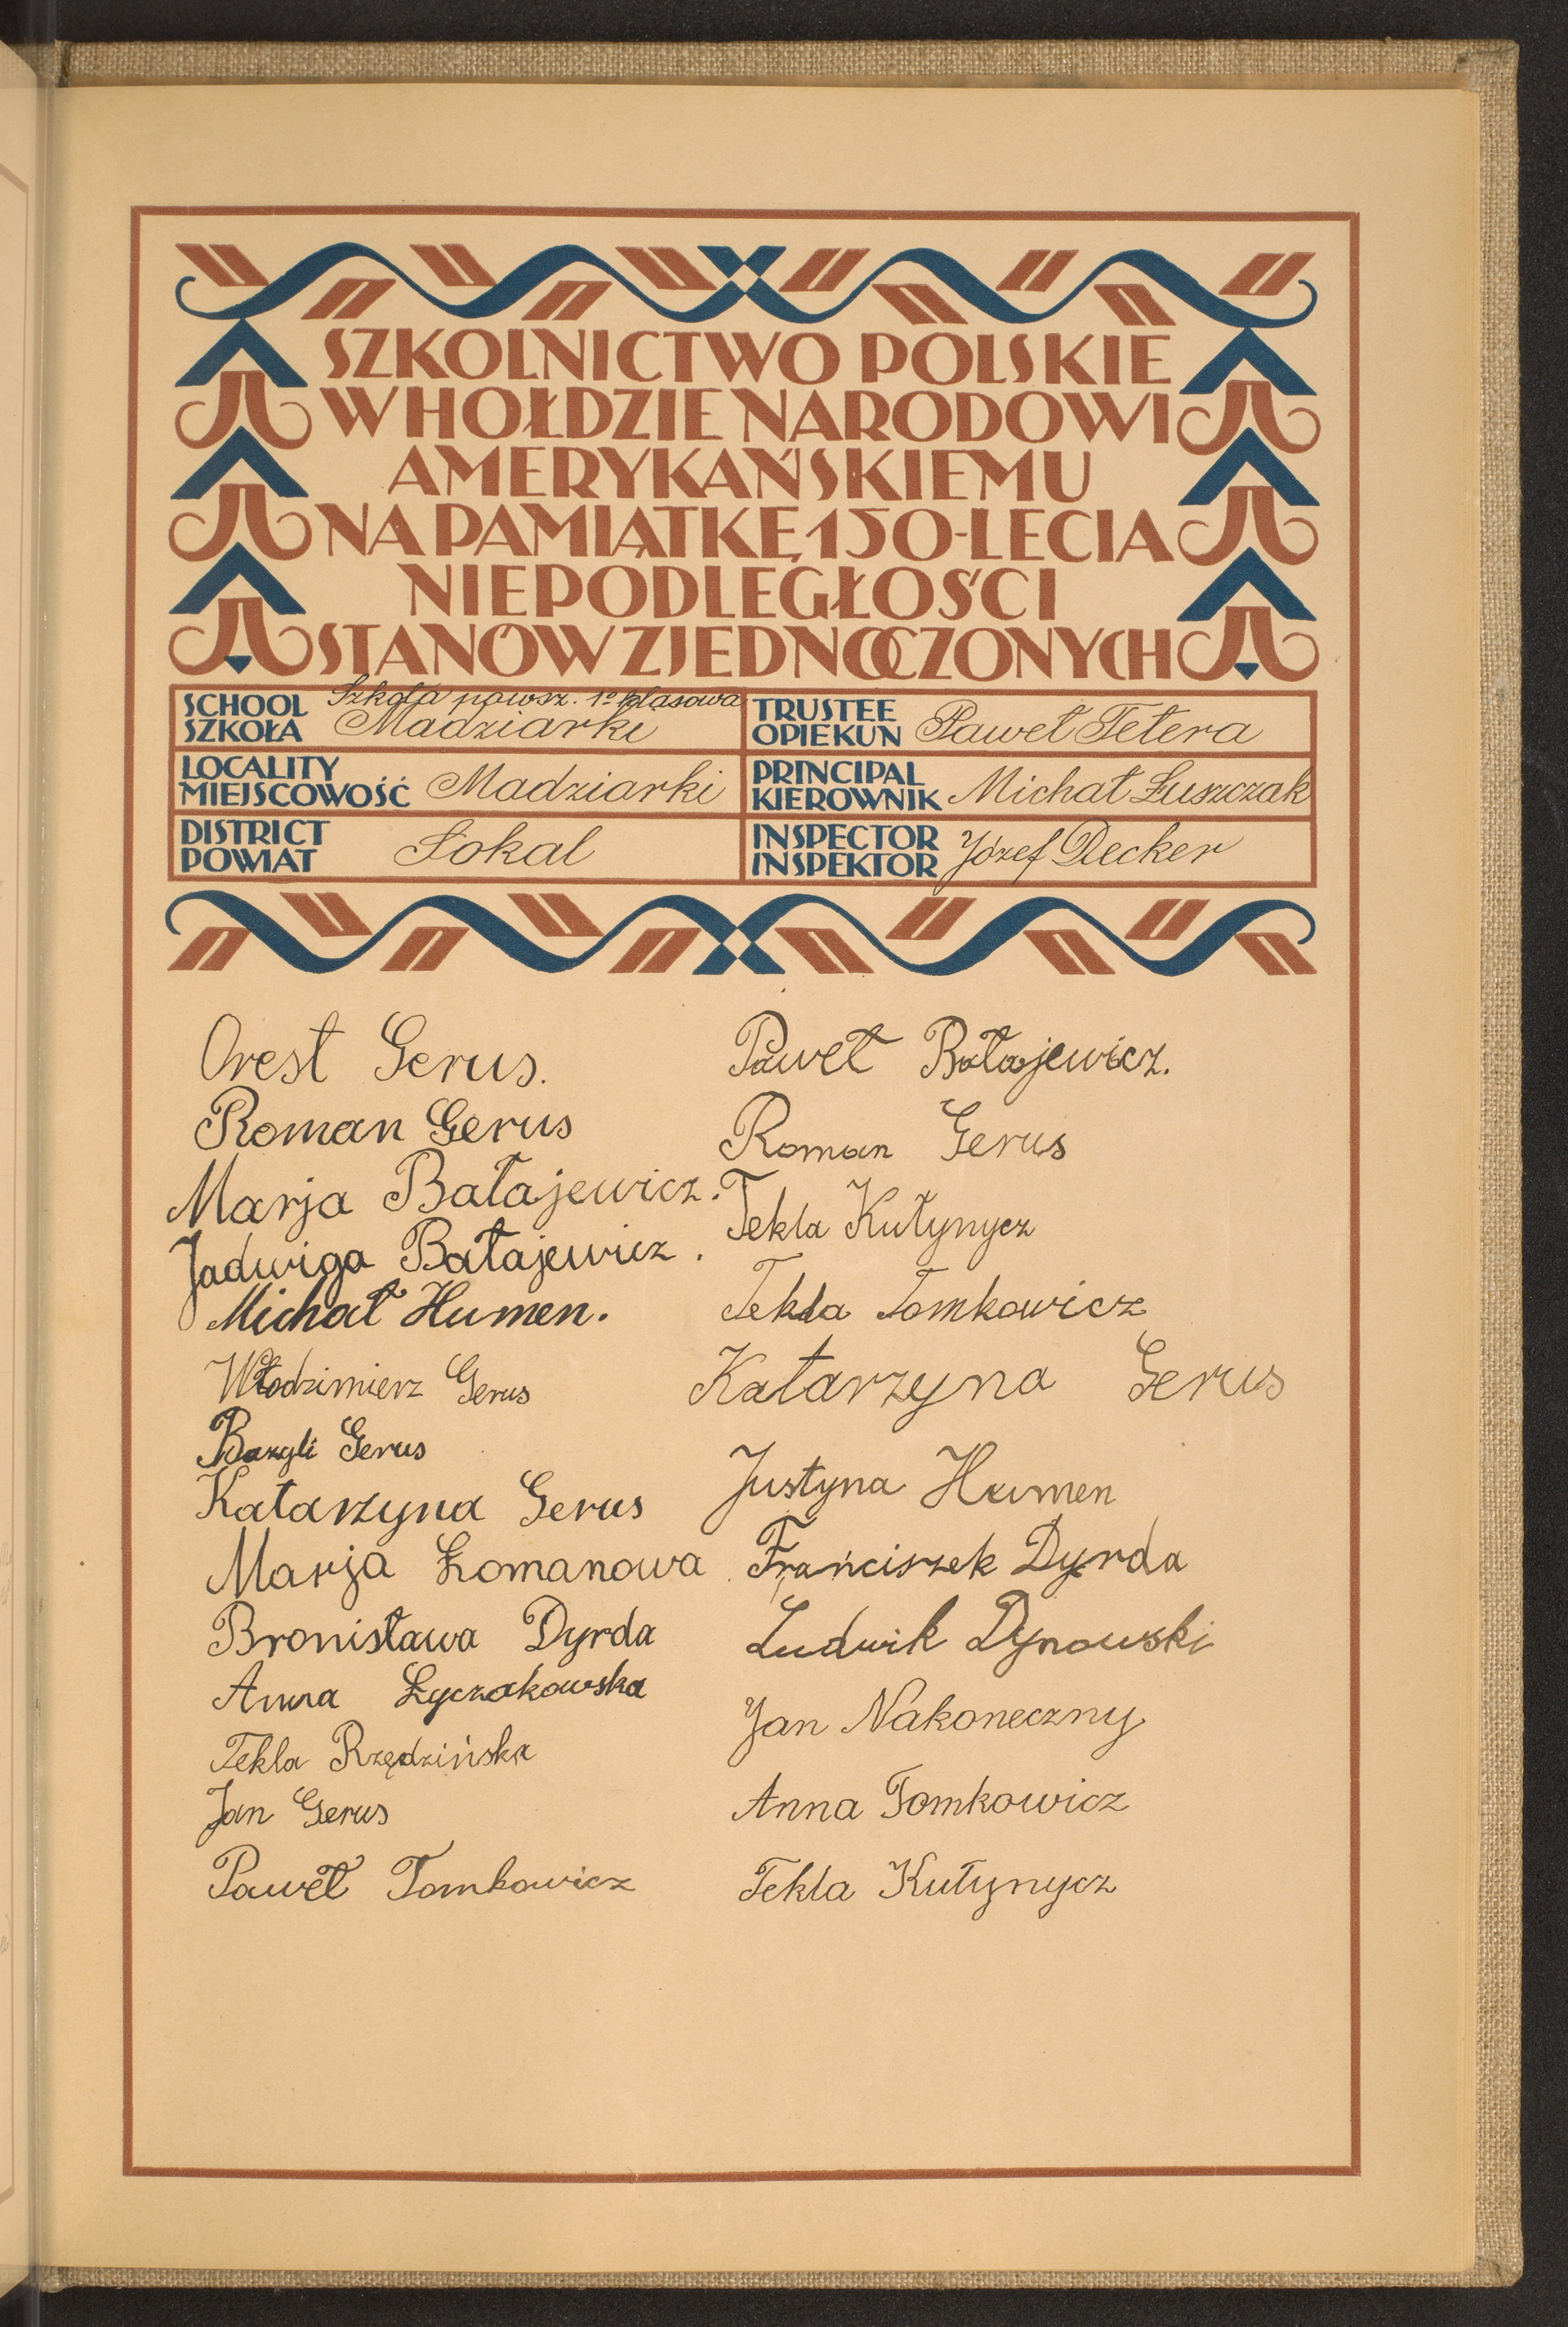 SZKOLNICTWO POLSKIE
W HOŁDZIE NARODOWI
AMERYKAŃSKIEMU
NA PAMIĄTKĘ 150-LECIA
NIEPODLEGŁOŚCI
STANÓW ZJEDNOCZONYCH
SCHOOL
SZKOŁA
Szkoła powsz. 1º klasowa
Madziarki
TRUSTEE
OPIEKUN
Paweł Tetera
LOCALITY
MIEJSCOWOŚĆ
Madziarki
PRINCIPAL
KIEROWNIK
Michał Łuszczak
DISTRICT
POWIAT
Sokal
INSPECTOR
INSPEKTOR
Józef Decker
Orest Gerus.
Roman Gerus
Marja Bałajewicz.
Jadwiga Bałajewicz.
Michał Humen.
Włodzimierz Gerus
Bazyli Gerus
Katarzyna Gerus
Marja Łomanowa
Bronisława Dyrda
Anna Łyczakowska
Tekla Rzędzińska
Jan Gerus
Paweł Tomkowicz
Paweł Bałajewicz.
Roman Gerus
Tekla Kułynycz
Tekla Tomkowicz
Katarzyna Gerus
Justyna Humen
Frańciszek Dyrda
Ludwik Dynowski
Jan Nakoneczny
Anna Tomkowicz
Tekla Kułynycz